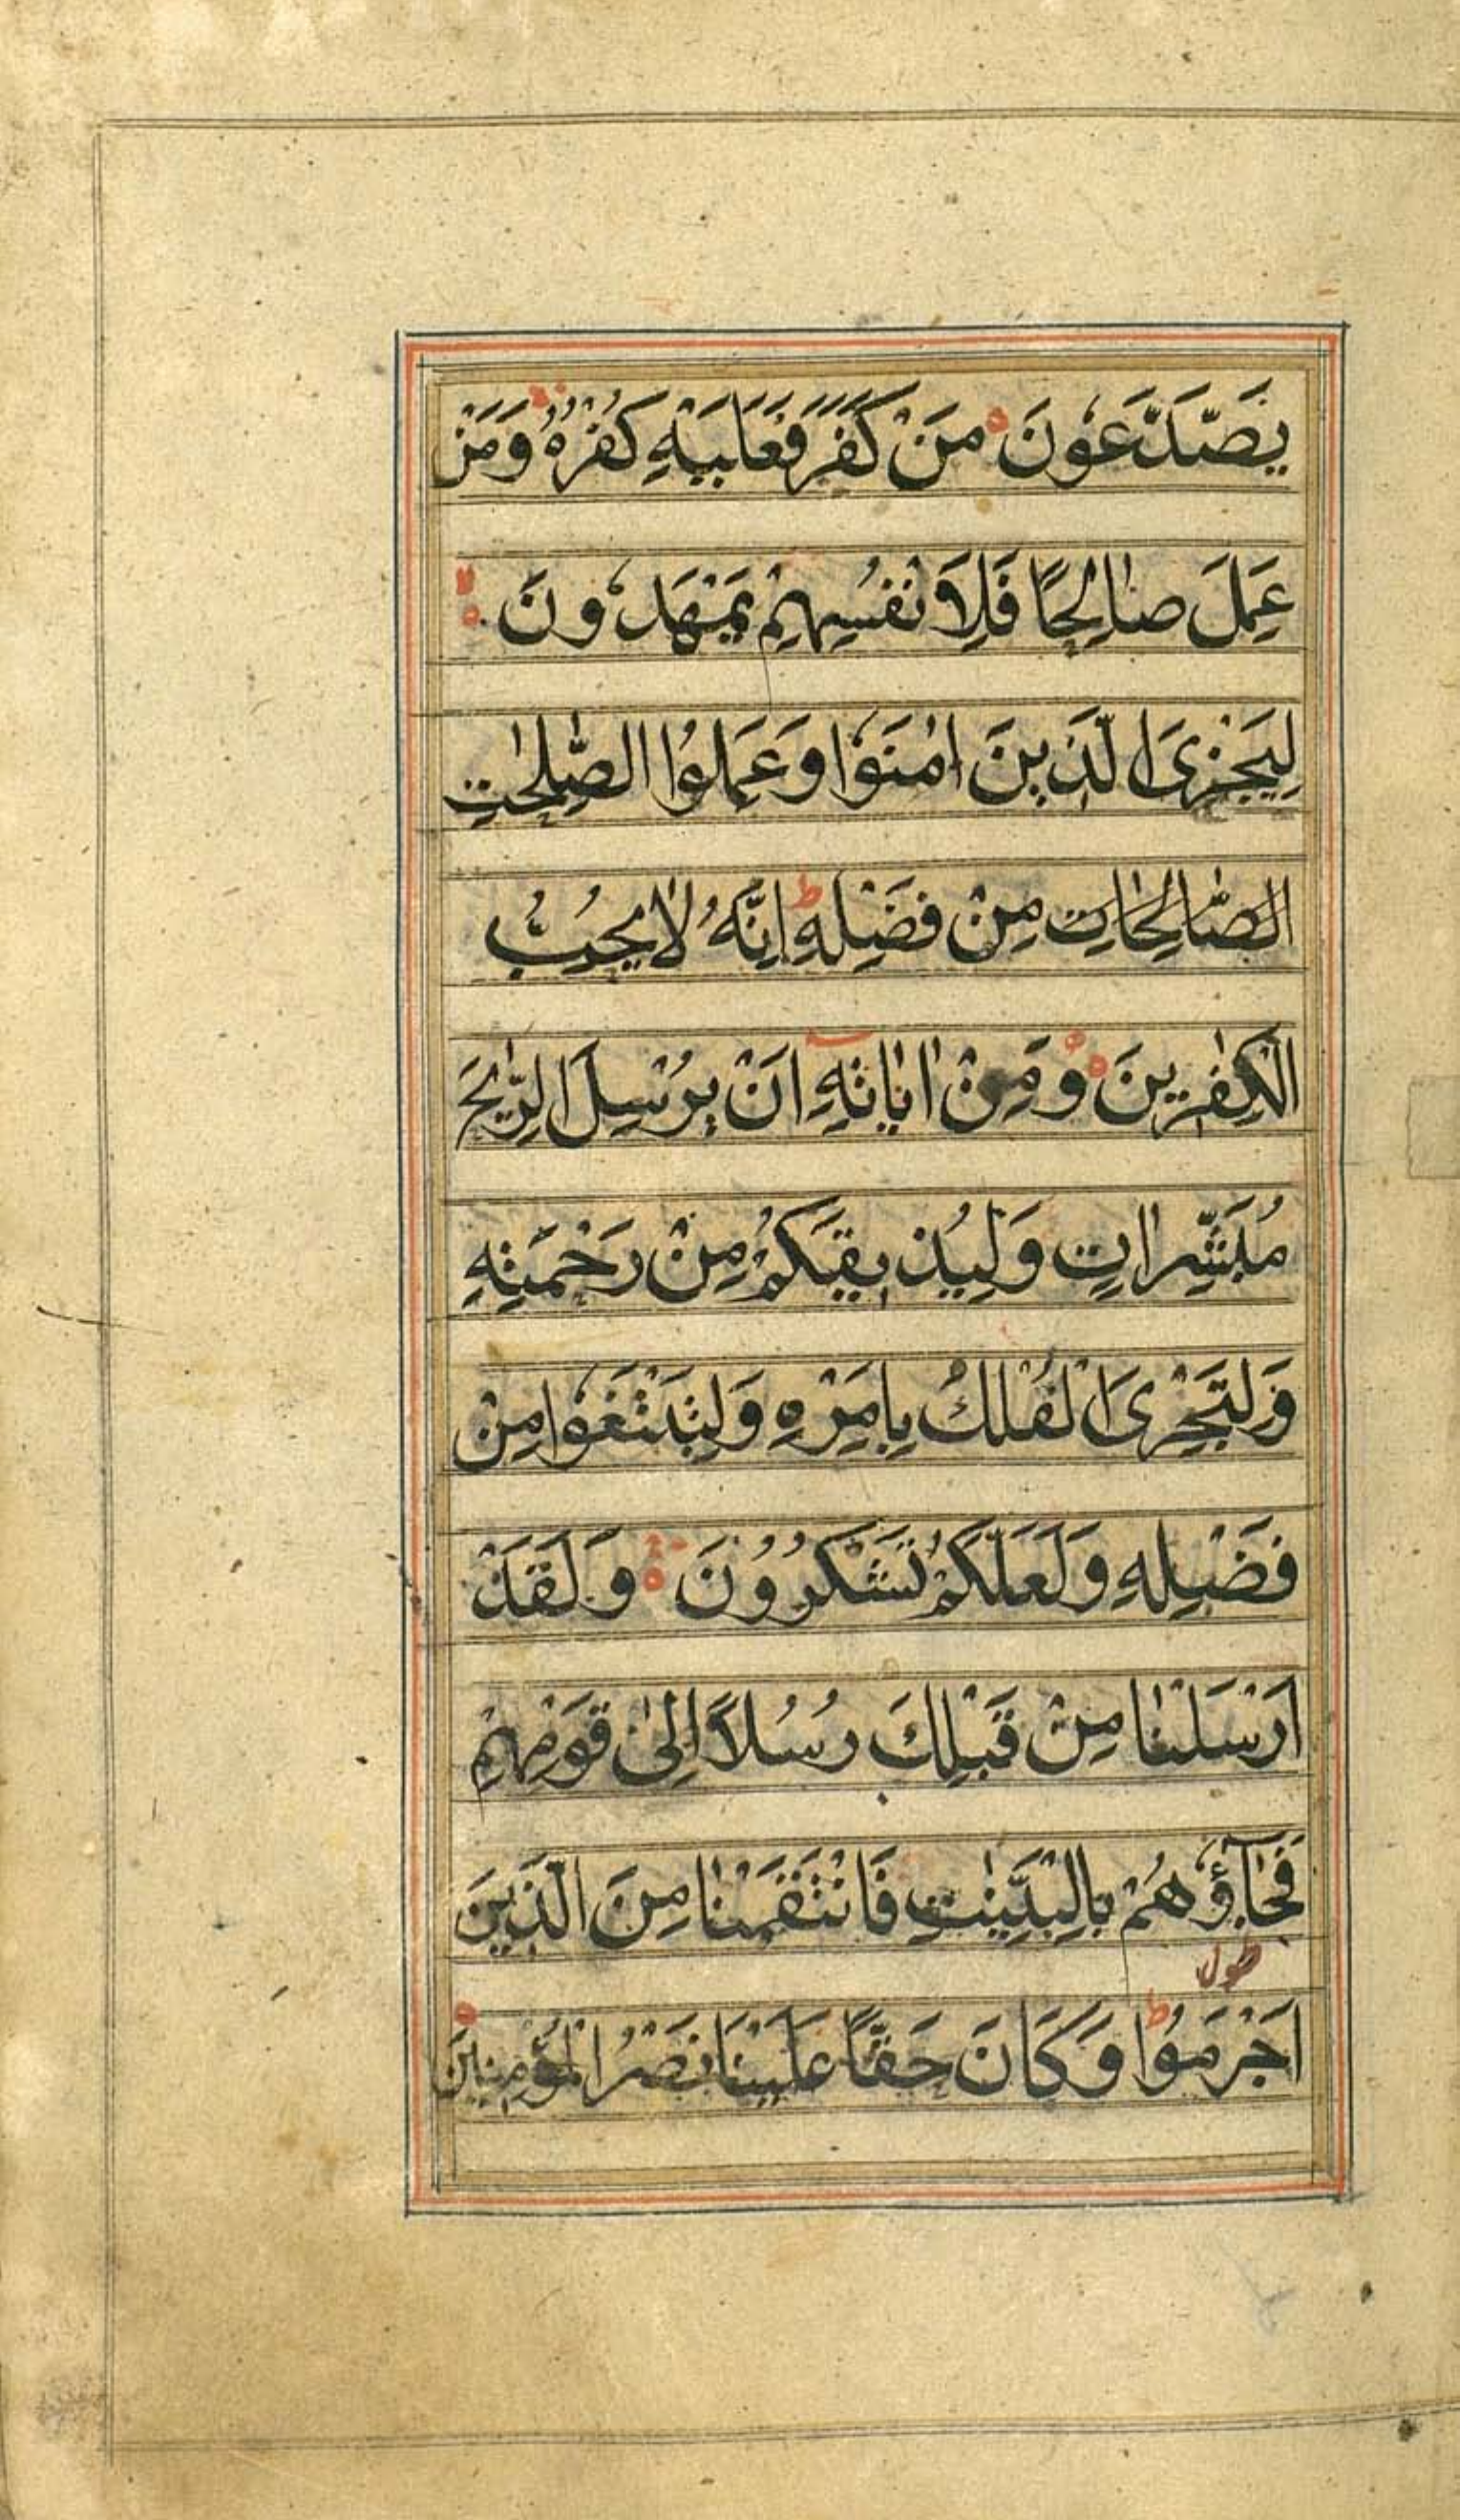 يَصَّدَّعُونَ مَنْ كَفَرَ فَعَلَيْهِ كُفْرُهُ وَمَنْ
عَمِلَ صَالِحًا فَلِاَنْفُسِهِمْ يَمْهَدُونَ
لِيَجْزِىَ الَّذِينَ اٰمَنُوْا وَعَمِلُوا الصّٰلِحٰتِ
الصَّالِحَاتِ مِنْ فَضْلِهِ ط اِنَّهُ لَا يُحِبُّ
الْكٰفِرِينَ وَمِنْ اٰيَاتِهِ اَنْ يُرْسِلَ الرِّيٰحَ
مُبَشِّرَاتٍ وَلِيُذِيقَكُمْ مِنْ رَحْمَتِهِ
وَلِتَجْرِىَ الْفُلْكُ بِاَمْرِهِ وَلِتَبْتَغُوْا مِنْ
فَضْلِهِ وَلَعَلَّكُمْ تَشْكُرُوْنَ وَلَقَدْ
اَرْسَلْنَا مِنْ قَبْلِكَ رُسُلًا اِلىٰ قَوْمِهِمْ
فَجَآؤُهُمْ بِالْبَيِّنٰتِ فَانْتَقَمْنَا مِنَ الَّذِينَ
طول
اَجْرَمُوْا ط وَكَانَ حَقًّا عَلَيْنَا نَصْرُ الْمُؤْمِنِينَ